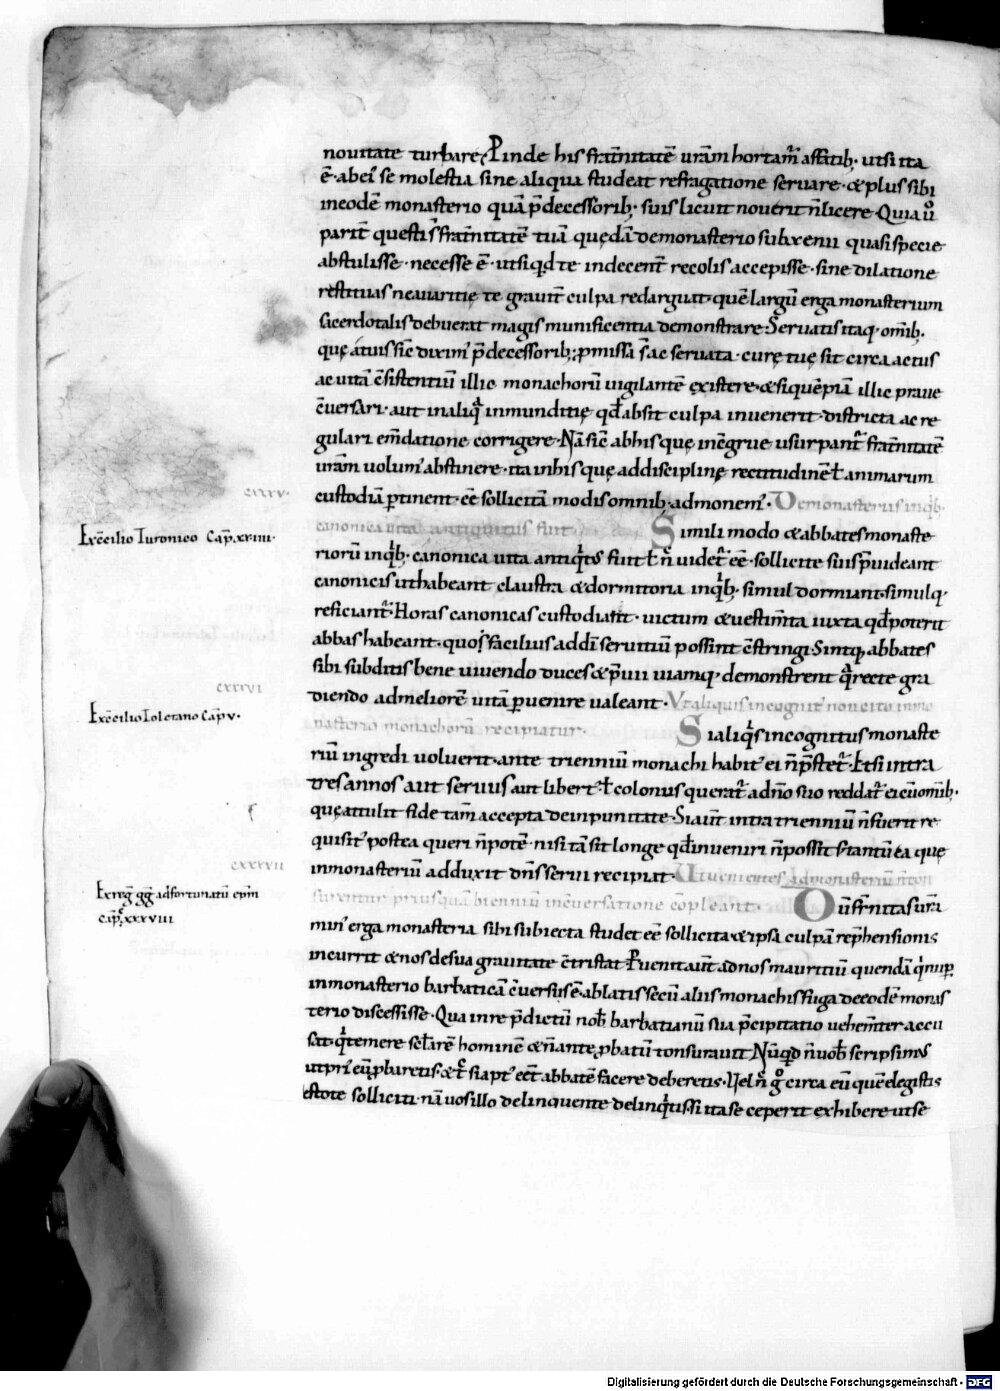 nouitate turbare. Pinde his frat̄nitatē ur̄am hortam̄ affatib; ut si ita
ē abei se molestia sine aliqua studeat refragatione seruare. & plus sibi
in eodē monasterio quā p̄decessorib; suis licuit nouerit n̄ licere. Quia ū
parit̄ questi s̄ frat̄nitatē tuā quędā de monasterio sub xenii quasi specie
abstulisse. necesse ē. ut si qd te indecent̄ recolis accepisse. sine dilatione
restituas ne auaritię te grauit̄ culpa redarguat. quē largū erga monasterium
sacerdotalis debuerat magis munificentia demonstrare. Seruatis itaq; om̄ib;
quę a tuis sic̄ diximꝰ p̄decessorib; p̄missa s̄ ac seruata. curę tuę sit circa actus
ac uitā c̄sistentiū illic monachorū uigilantē existere. & si quēpiā illic praue
c̄uersari. aut in aliq̄ inmunditię qd absit culpa inuenerit. districta ac re
gulari em̄datione corrigere. Nā sic̄ ab his quę incongrue usurpant̄ frat̄nitatē
ur̄am uolumꝰ abstinere. ita in his quę ad disciplinę rectitudinē ł animarum
custodiā p̄tinent. eē sollicitā modis omnib; admonemꝰ. De monasteriis in qib;
canonica uita antiquitus fuit
CXXXV.
Ex c̄cilio Turonico Cap̄. xxiiii.
Simili modo & abbates monaste
riorū in qib; canonica uita antiqitus fuit ł n̄ uidet̄ eē. sollicite suis p̄uideant
canonicis ut habeant claustra & dormitoria in qib; simul dormiunt. simulq;
reficiant̄. Horas canonicas custodiant. uictum & uestim̄ta iuxta qd poterit
abbas habeant. quo facilius ad dī seruitiū possint c̄stringi. Sintq; abbates
sibi subditis bene uiuendo duces & p̄uii uiamq; demonstrent q̄ recte gra
diendo ad meliorē uitā p̄uenire ualeant. Ut aliquis incognitꝰ non cito in mo
nasterio monachorū recipiatur.
CXXXVI
Ex c̄cilio Toletano Cap̄ v.
Si aliqis incognitus monaste
riū ingredi uoluerit. ante trienniū monachi habitꝰ ei n̄ p̄stet̄. Et si intra
tres annos aut seruus aut libertꝰ ł colonus querat̄ a dn̄o suo reddat̄ ei cū om̄ib;
quę attulit fide tam̄ accepta de inpunitate. Si aut̄ intra trienniū n̄ fuerit re
quisitꝰ postea queri n̄ potē. nisi tā sit longe qd inueniri n̄ possit. s; tantū ea quę
in monasteriū adduxit dn̄s serui recipiat. Ut uenientes ad monasteriū n̄ ton
surentur priusquā bienniū in c̄uersatione cōpleant.
CXXXVII
Ex reḡ gḡ ad fortunatū ep̄m
cap̄. xxxviii
Dū fr̄nitas ur̄a
minꝰ erga monasteria sibi subiecta studet eē sollicita & ipsa culpā rep̄hensionis
incurrit & nos de sua grauitate c̄tristat. Puenit aut̄ ad nos mauritiū quendā q̄ nup̄
in monasterio barbaticā c̄uersus ē ablatis secū aliis monachis fuga de eodē monas
terio discessisse. Qua in re p̄dictū nob̄ barbatianū sua p̄cipitatio uehem̄ter accu
sat. q̄ temere sc̄larē hominē & n̄ ante p̄batū tonsurauit. Nūqd n̄ uob̄ scripsimꝰ
ut priꝰ eū p̄baretis. & t̄ si aptꝰ eēt abbatē facere deberetis. Uel n̄c g̊ circa eū quē elegistis
estote solliciti. nā uos illo delinquente delinqitis. si ita se ceperit exhibere ut se
Digitalisierung gefördert durch die Deutsche Forschungsgemeinschaft - DFG